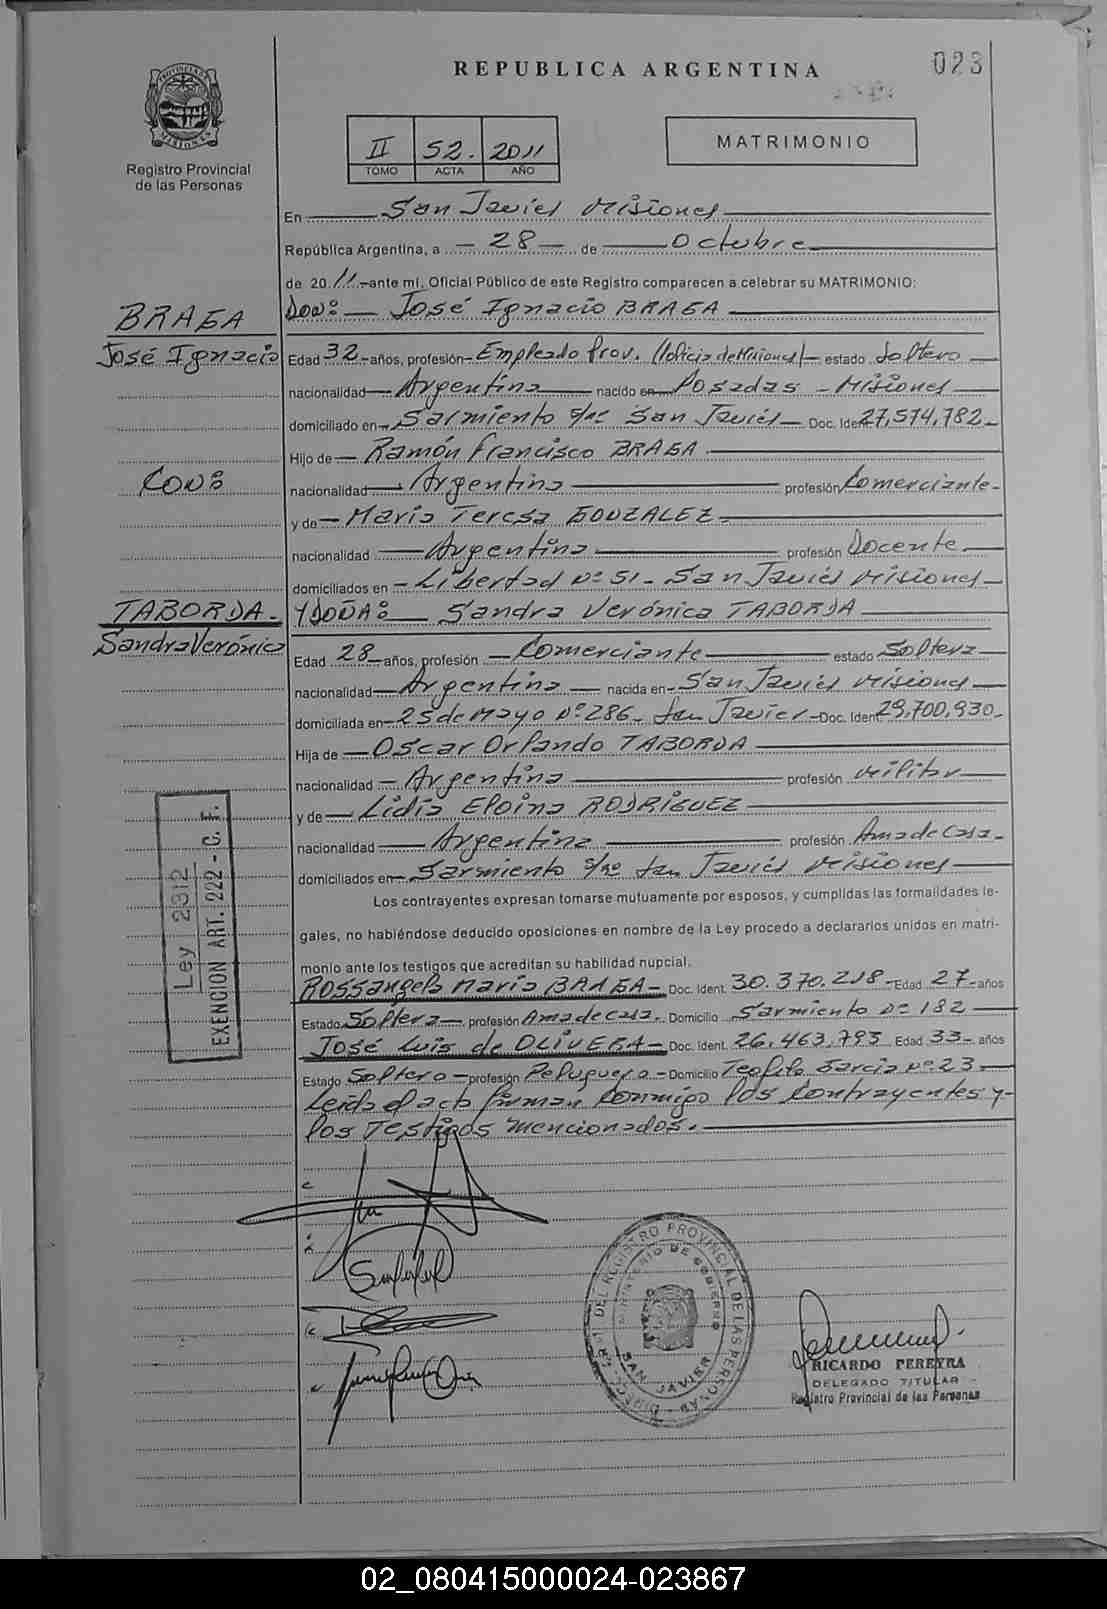 023
REPUBLICA ARGENTINA
PROVINCIA DE
MISIONES
Registro Provincial
de las Personas
II 52. 2011
TOMO ACTA AÑO
MATRIMONIO
En San Javier Misiones
República Argentina, a 28 de Octubre
de 2011 ante mí, Oficial Público de este Registro comparecen a celebrar su MATRIMONIO:
BRAGA
DON: José Ignacio BRAGA
José Ignacio
Edad 32 años, profesión Empleado Prov. (Policia de Misiones) estado Soltero
nacionalidad Argentina nacido en Posadas - Misiones
domiciliado en Sarmiento s/nº San Javier Doc. Ident. 27,574,782
Hijo de Ramón Francisco BRAGA
CON:
nacionalidad Argentina profesión Comerciante
y de María Teresa GONZALEZ
nacionalidad Argentina profesión Docente
domiciliados en Libertad Nº 51 - San Javier Misiones
TABORDA
Y DOÑA: Sandra Verónica TABORDA
Sandra Verónica
Edad 28 años, profesión Comerciante estado Soltera
nacionalidad Argentina nacida en San Javier Misiones
domiciliada en 25 de Mayo Nº 286 - San Javier Doc. Ident. 29,700,930
Hija de Oscar Orlando TABORDA
nacionalidad Argentina profesión Militar
y de Lidia Eloina RODRIGUEZ
nacionalidad Argentina profesión Ama de Casa
domiciliados en Sarmiento s/nº San Javier Misiones
Ley 2312
EXENCION ART. 222 - C. F.
Los contrayentes expresan tomarse mutuamente por esposos, y cumplidas las formalidades le-
gales, no habiéndose deducido oposiciones en nombre de la Ley procedo a declararlos unidos en matri-
monio ante los testigos que acreditan su habilidad nupcial.
Rossangela María BRAGA Doc. Ident. 30.370.218 Edad 27 años
Estado Soltera profesión Ama de Casa. Domicilio Sarmiento Nº 182
José Luis de OLIVERA Doc. Ident. 26.463.795 Edad 33 años
Estado Soltero profesión Peluquero Domicilio Teofilo Garcia Nº 23
Leída el acta firman conmigo los Contrayentes y
los Testigos mencionados.
DIRECC. GRAL. DEL REGISTRO PROVINCIAL DE LAS PERSONAS
MINISTERIO DE GOBIERNO
SAN JAVIER
RICARDO PEREYRA
DELEGADO TITULAR
Registro Provincial de las Personas
02_080415000024-023867